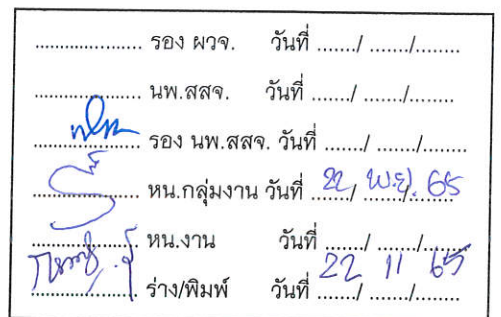 ..................... รอง ผวจ. วันที่ ......./ ......./........
..................... นพ.สสจ. วันที่ ......./ ......./........
..................... รอง นพ.สสจ. วันที่ ......./ ......./........
..................... หน.กลุ่มงาน วันที่ 22 / พ.ย. / 65
..................... หน.งาน วันที่ ......./ ......./........
..................... ร่าง/พิมพ์ วันที่ 22 / 11 / 65